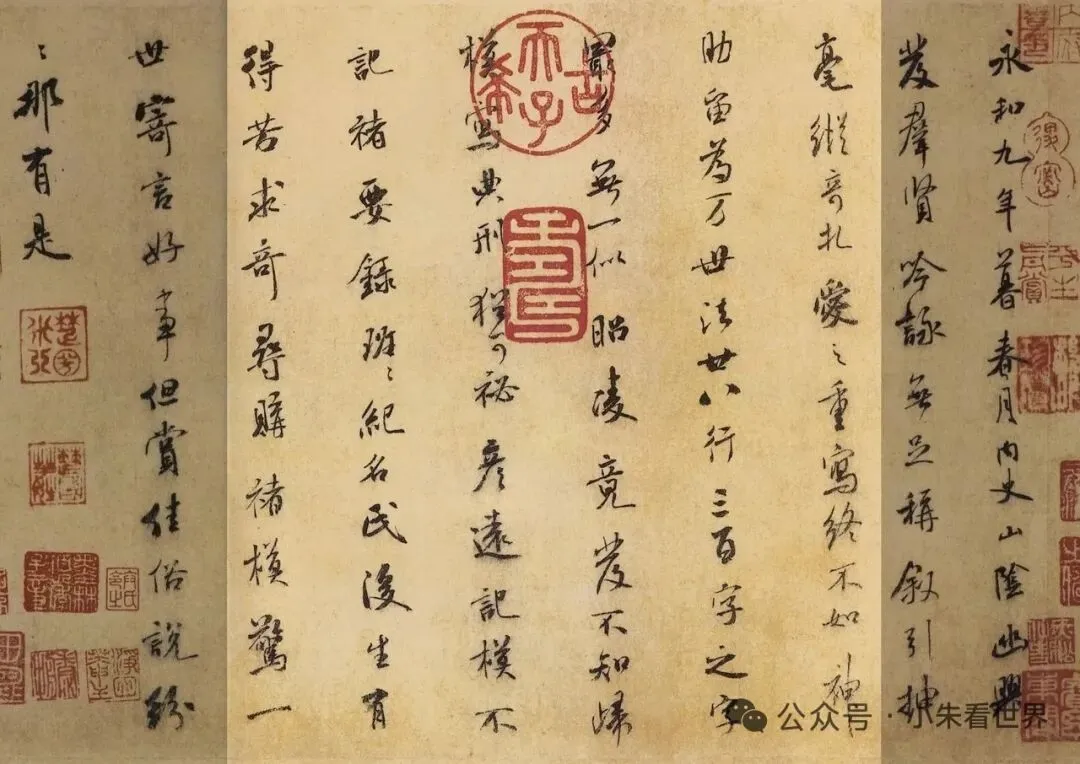 永和九年暮春月内史山陰幽興
發羣賢吟詠無足稱叙引抽
毫縱奇札愛之重寫終不如神
助留為万世法廿八行三百字之字
最多無一似昭陵竟發不知歸
模寫典刑猶可祕彦遠記模不
記褚要錄班〻紀名氏後生有
得苦求奇尋購褚模驚一
世寄言好事但賞佳俗說紛
〻那有是
古希天子
公众号 · 小朱看世界